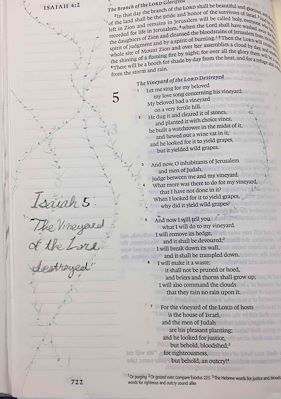 ISAIAH 4:2
The Branch of the LORD Glorified
² In that day the branch of the LORD shall be beautiful and
of the land shall be the pride and honor of the survivors of
left in Zion and remains in Jerusalem will be called holy, everyone
recorded for life in Jerusalem, ⁴ when the Lord shall have washed
the daughters of Zion and cleansed the bloodstains of Jerusalem
spirit of judgment and by a spirit of burning. ⁵ Then the LORD will
whole site of Mount Zion and over her assemblies a cloud by day,
the shining of a flaming fire by night; for over all the glory
⁶ There will be a booth for shade by day from the heat, and for a refuge
from the storm and rain.
The Vineyard of the LORD Destroyed
5
Let me sing for my beloved
my love song concerning his vineyard:
My beloved had a vineyard
on a very fertile hill.
He dug it and cleared it of stones,
and planted it with choice vines;
he built a watchtower in the midst of it,
and hewed out a wine vat in it;
and he looked for it to yield grapes,
but it yielded wild grapes.
And now, O inhabitants of Jerusalem
and men of Judah,
judge between me and my vineyard.
What more was there to do for my vineyard,
that I have not done in it?
When I looked for it to yield grapes,
why did it yield wild grapes?
And now I will tell you
what I will do to my vineyard.
I will remove its hedge,
and it shall be devoured;
I will break down its wall,
and it shall be trampled down.
I will make it a waste;
it shall not be pruned or hoed,
and briers and thorns shall grow up;
I will also command the clouds
that they rain no rain upon it.
For the vineyard of the LORD of hosts
is the house of Israel,
and the men of Judah
are his pleasant planting;
and he looked for justice,
but behold, bloodshed;
for righteousness,
but behold, an outcry!
Isaiah 5
"The Vineyard
of the Lord
destroyed"
722
words for righteous and outcry sound alike